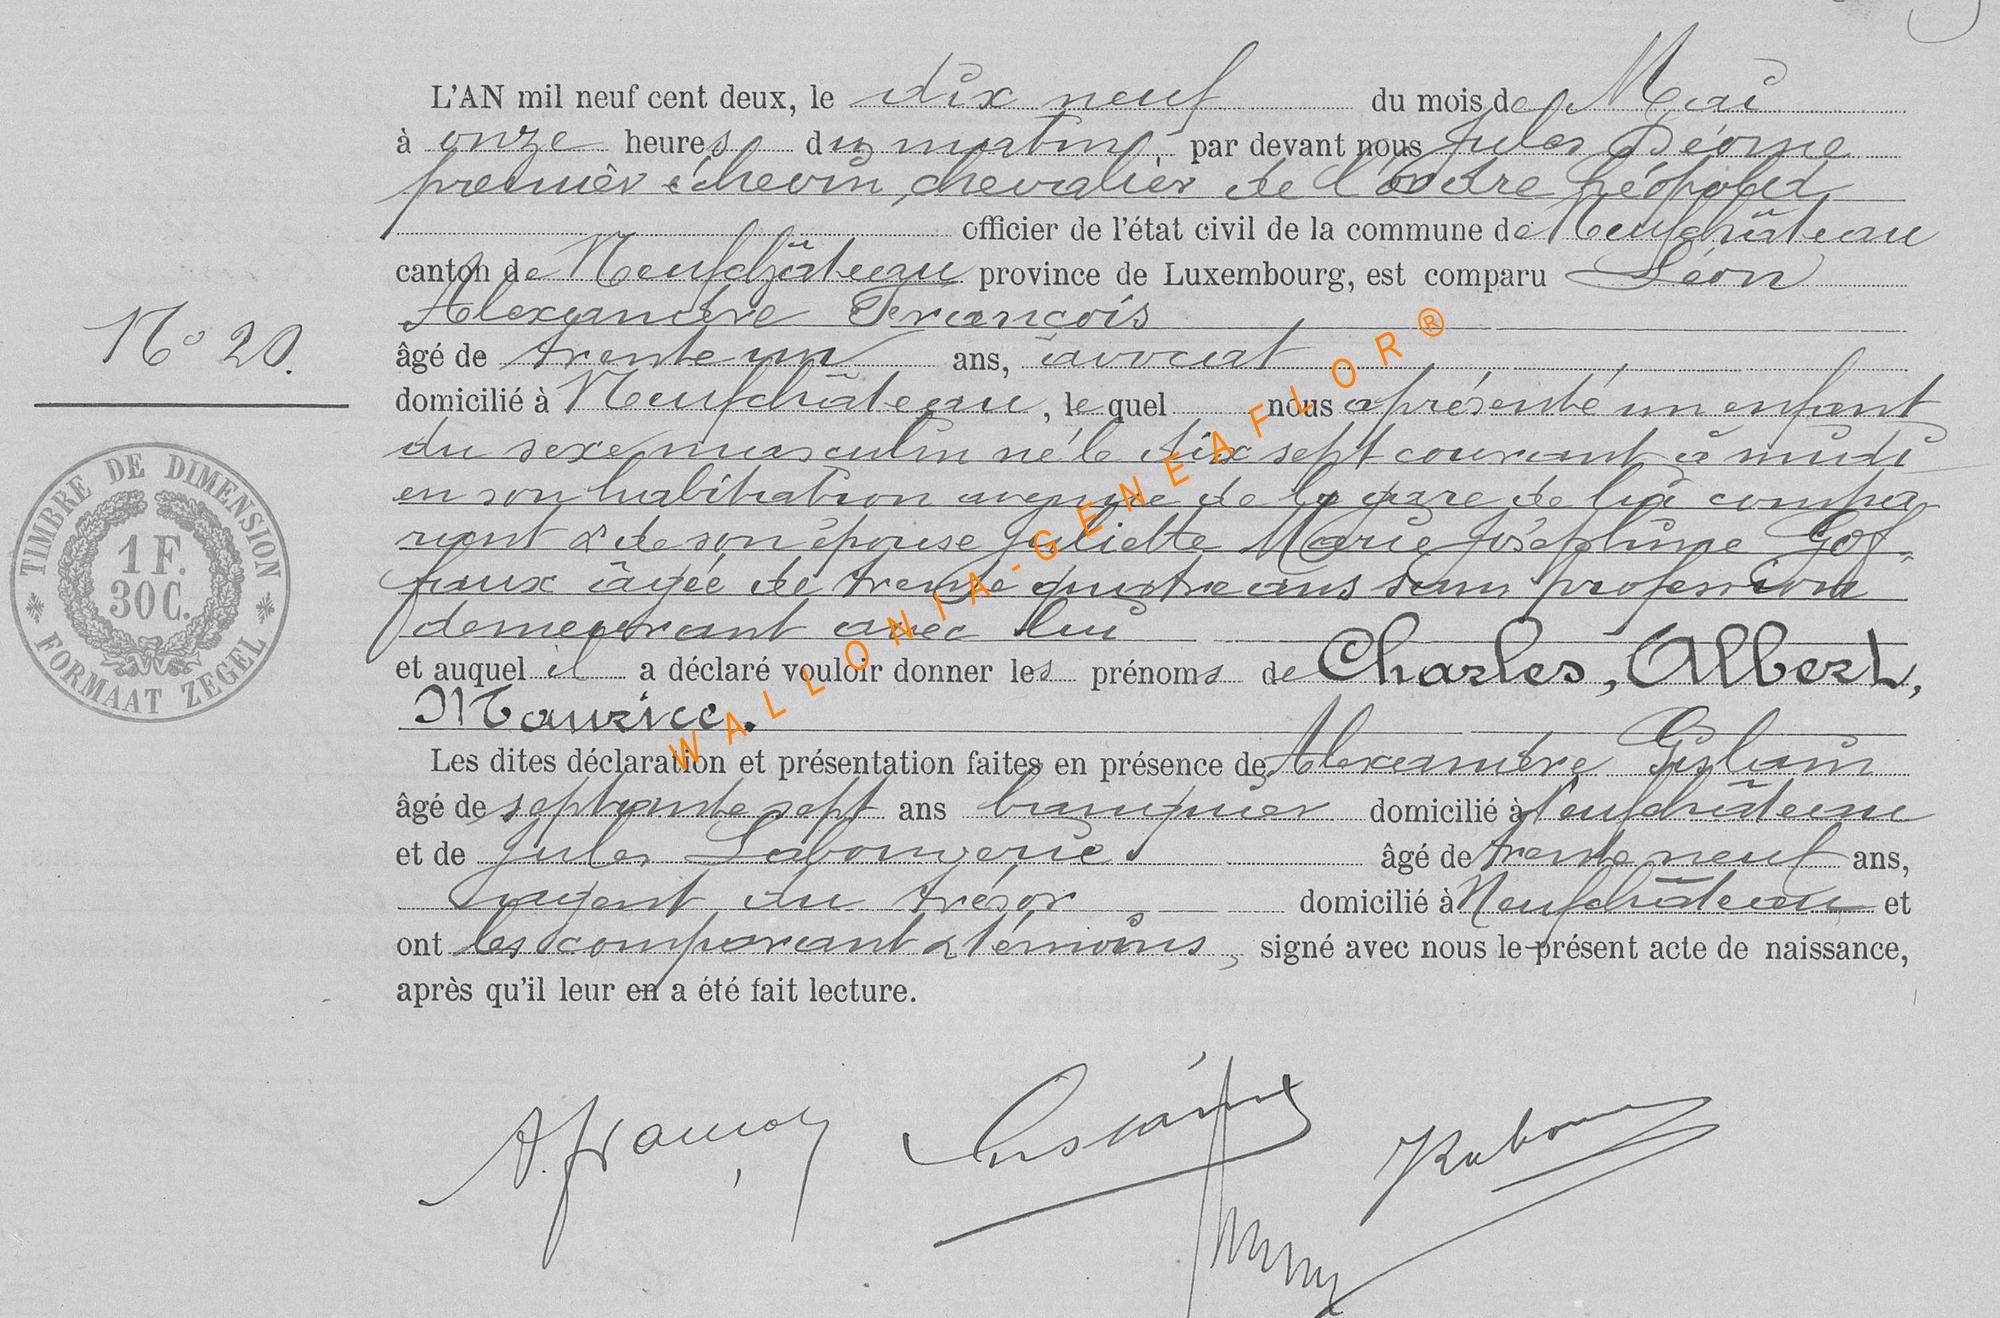 L'AN mil neuf cent deux, le dix neuf du mois de Mai
à onze heures du matin, par devant nous Jules
premier échevin, chevalier de l'ordre Léopold,
officier de l'état civil de la commune de Neufchâteau
canton de Neufchâteau province de Luxembourg, est comparu Léon
Alexandre François
âgé de trente un ans, avocat
domicilié à Neufchâteau, le quel nous a présenté un enfant
du sexe masculin né le dix sept courant à midi
en son habitation avenue de la gare de lui compa-
rant & de son épouse Juliette Marie Joséphine Gof-
faux âgée de trente quatre ans sans profession
demeurant avec lui
et auquel il a déclaré vouloir donner les prénoms de Charles, Albert,
Maurice.
Les dites déclaration et présentation faites en présence de Alexandre Gislain
âgé de septante sept ans banquier domicilié à Neufchâteau
et de Jules Labouverie âgé de trente neuf ans,
agent du trésor domicilié à Neufchâteau et
ont les comparant & témoins, signé avec nous le présent acte de naissance,
après qu'il leur en a été fait lecture.
No 20.
TIMBRE DE DIMENSION
1 F.
30 C.
FORMAAT ZEGEL
WALLONIA-GENEAFLOR®